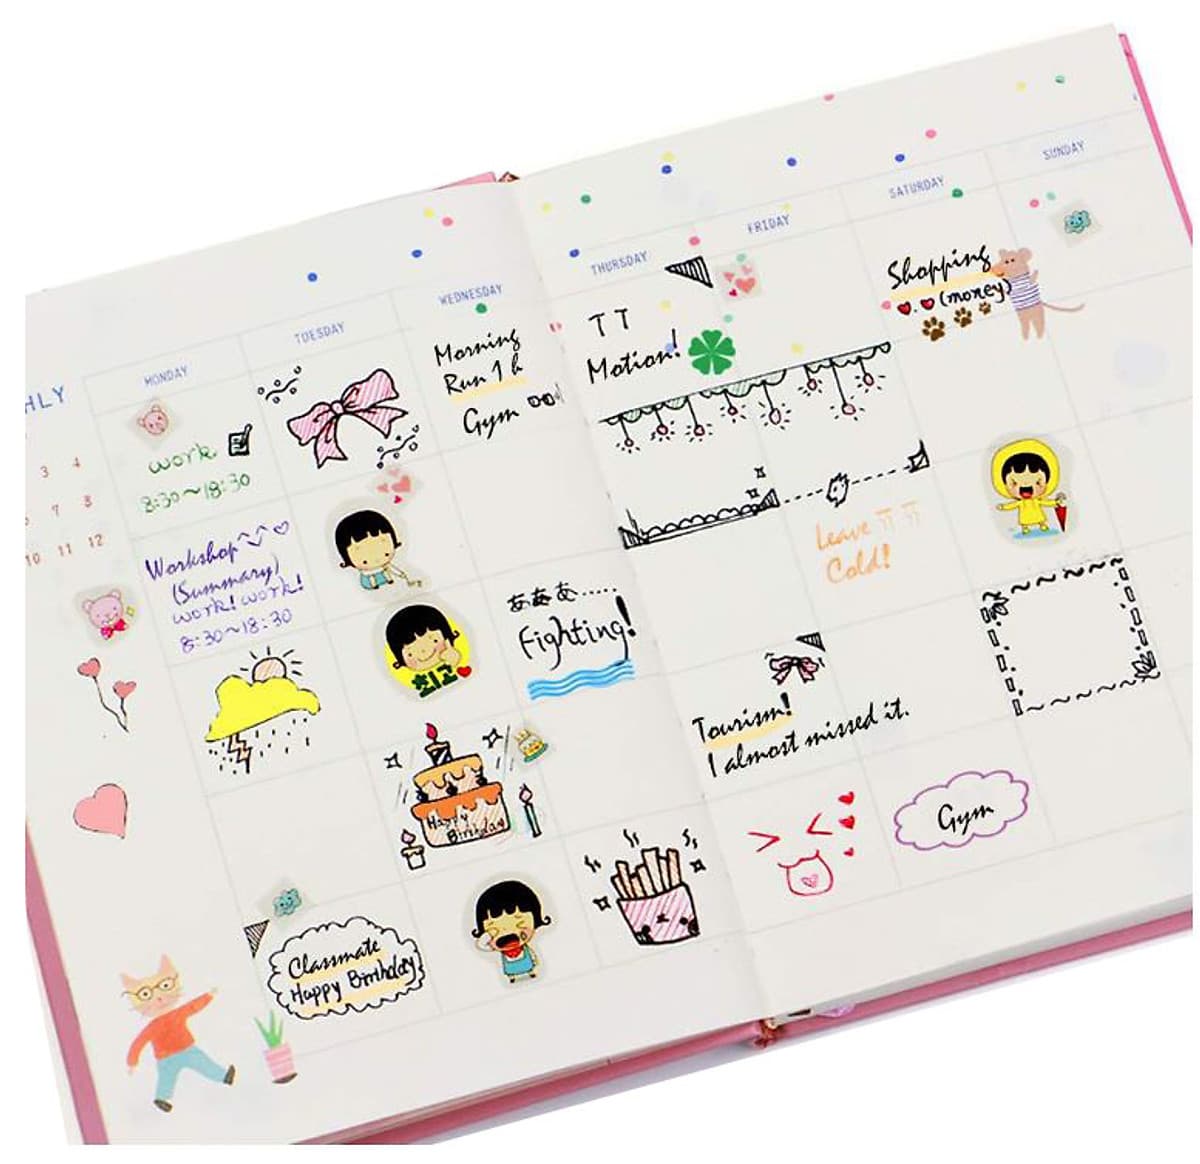 HLY
MONDAY
TUESDAY
WEDNESDAY
THURSDAY
FRIDAY
SATURDAY
SUNDAY
3 4
7 8
10 11 12
work
8:30~18:30
Morning
Run 1 h
Gym
TT
Motion!
Shopping
(money)
Workshop
(Summary)
work! work!
8:30~18:30
Leave
Cold!
최고
あああ......
Fighting!
Tourism!
I almost missed it.
Happy
Birthday
Gym
Classmate
Happy Birthday